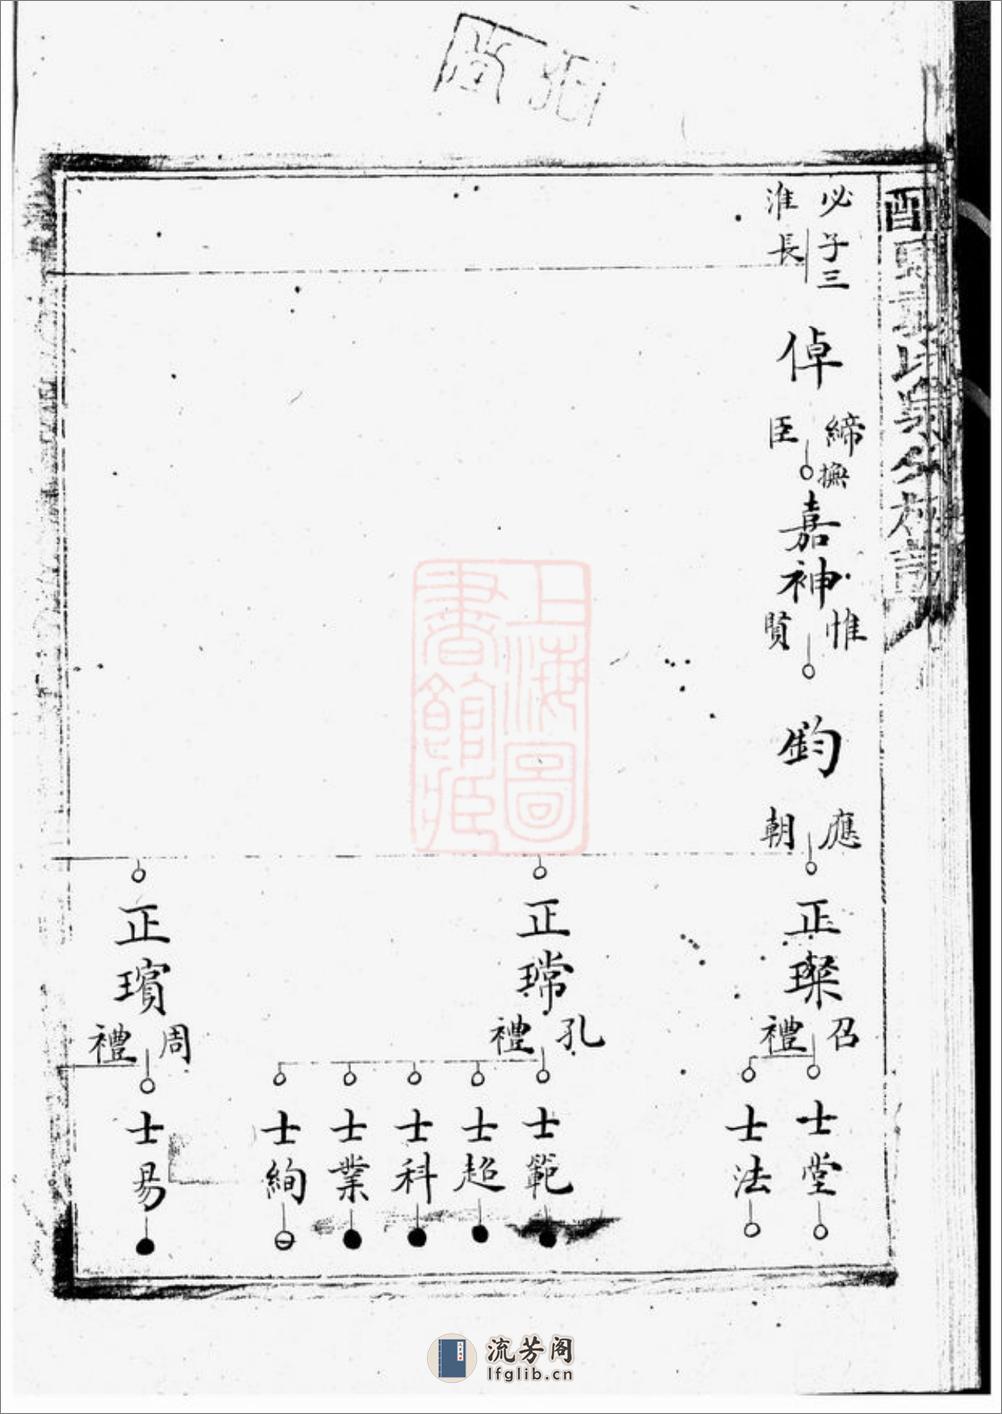 必子三
淮長
倬
締臣
撫
嘉神
惟賢
鈞
應朝
正璨
召禮
士堂
士法
正瑺
孔禮
士範
士超
士科
士業
士絢
正璸
周禮
士易
上海圖
書館藏
流芳阁
lfglib.cn